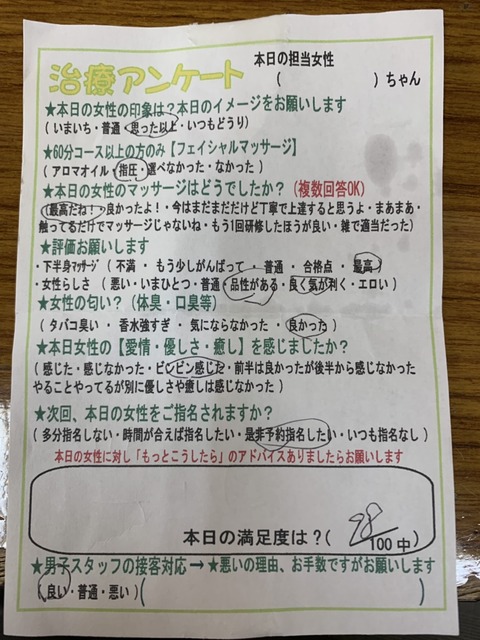 本日の担当女性
治療アンケート
( )ちゃん
★本日の女性の印象は?本日のイメージをお願いします
(いまいち・普通・思った以上・いつもどうり)
★60分コース以上の方のみ【フェイシャルマッサージ】
(アロマオイル・指圧・選べなかった・なかった)
★本日の女性のマッサージはどうでしたか?(複数回答OK)
(最高だね!・良かったよ!・今はまだまだだけど丁寧で上達すると思うよ・まあまあ・
触ってるだけでマッサージじゃないね・もう1回研修したほうが良い・雑で適当だった)
★評価お願いします
・下半身マッサージ(不満・もう少しがんばって・普通・合格点・最高)
・女性らしさ(悪い・いまひとつ・普通・品性がある・良く気が利く・エロい)
★女性の匂い?(体臭・口臭等)
(タバコ臭い・香水強すぎ・気にならなかった・良かった)
★本日女性の【愛情・優しさ・癒し】を感じましたか?
(感じた・感じなかった・ビンビン感じた・前半は良かったが後半から感じなかった
やることやってるが別に優しさや癒しは感じなかった)
★次回、本日の女性をご指名されますか?
(多分指名しない・時間が合えば指名したい・是非予約指名したい・いつも指名なし)
本日の女性に対し「もっとこうしたら」のアドバイスありましたらお願いします
本日の満足度は?( 98/100中)
★男子スタッフの接客対応→★悪いの理由、お手数ですがお願いします
(良い・普通・悪い)( )